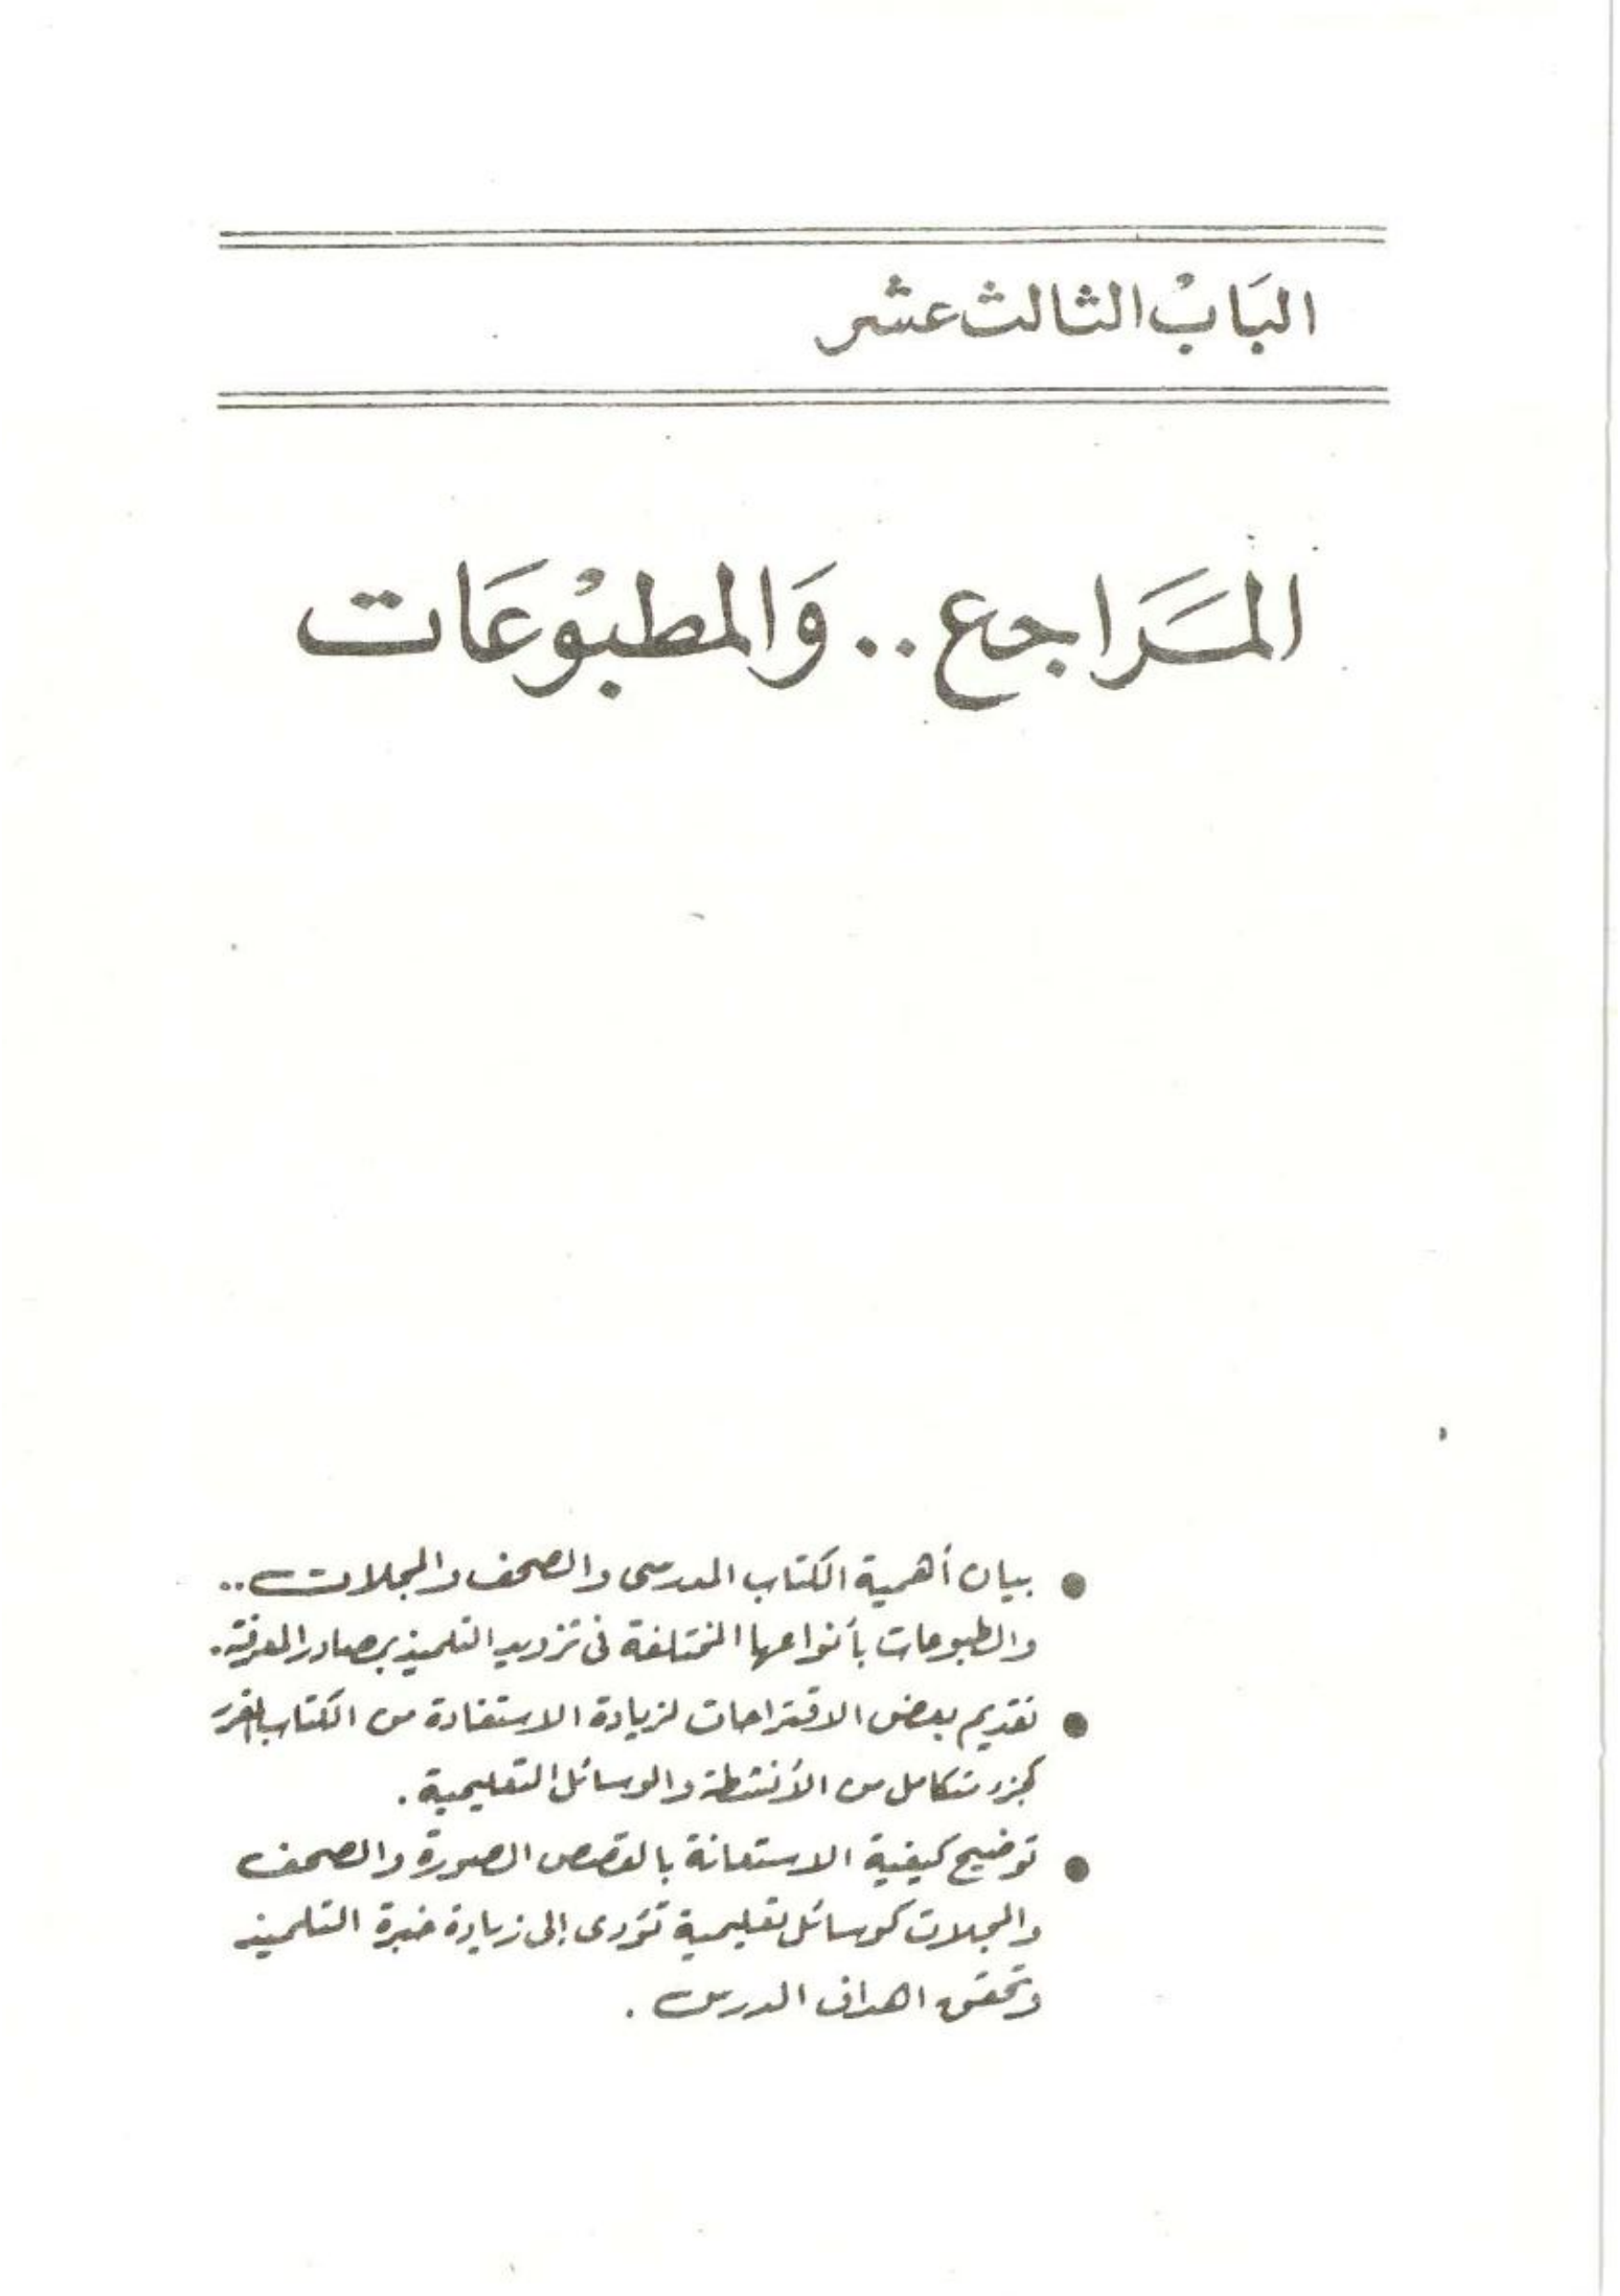 البَابُ الثالث عشر
المَرَاجع .. وَالمطبُوعَات
● بيان أهمية الكتاب المدرسى والصحف والمجلات ..
والمطبوعات بأنواعها المختلفة فى تزويد التلميذ بمصادر المعرفة .
● تقديم بعض الاقتراحات لزيادة الاستفادة من الكتاب المقرر
كجزء متكامل من الأنشطة والوسائل التعليمية .
● توضيح كيفية الاستعانة بالقصص المصورة والصحف
والمجلات كوسائل تعليمية تؤدى إلى زيادة خبرة التلميذ
وتحقق اهداف الدرس .